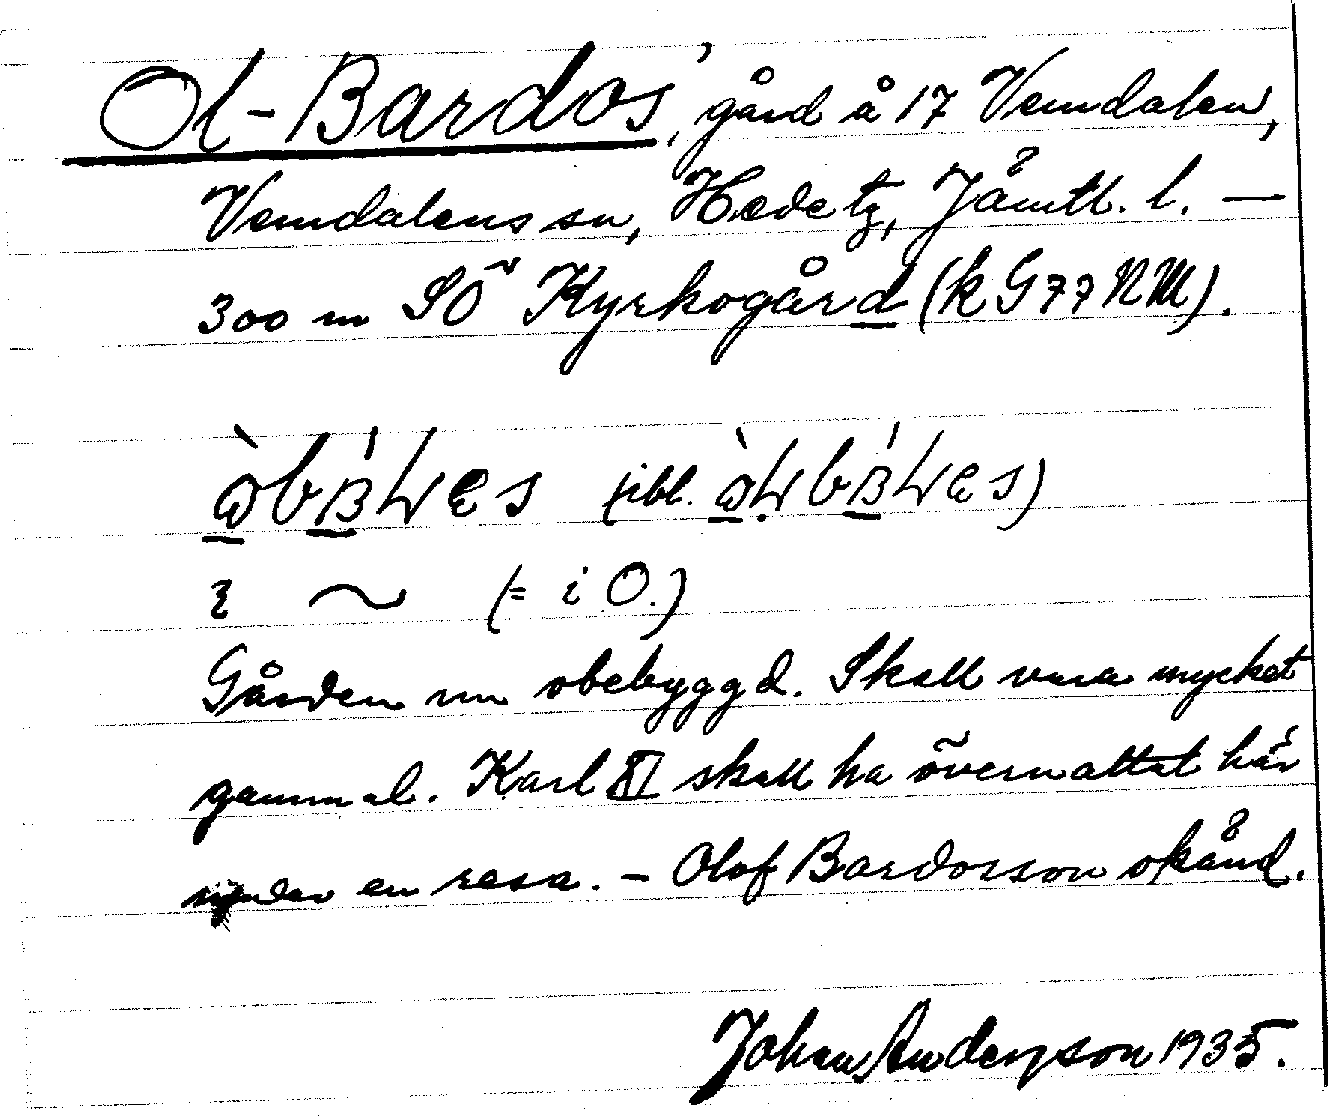 Ol-Bardos', gård å 17 Vemdalen,
Vemdalens sn, Hede tg, Jämtl. l. —
300 m SÖ Kyrkogård (k G 77 NM).
(= i O.)
Gården nu obebyggd. Skall vara mycket
gammal. Karl XI skall ha övernattat här
under en resa. – Olof Bardosson okänd.
Johan Anderson 1935.